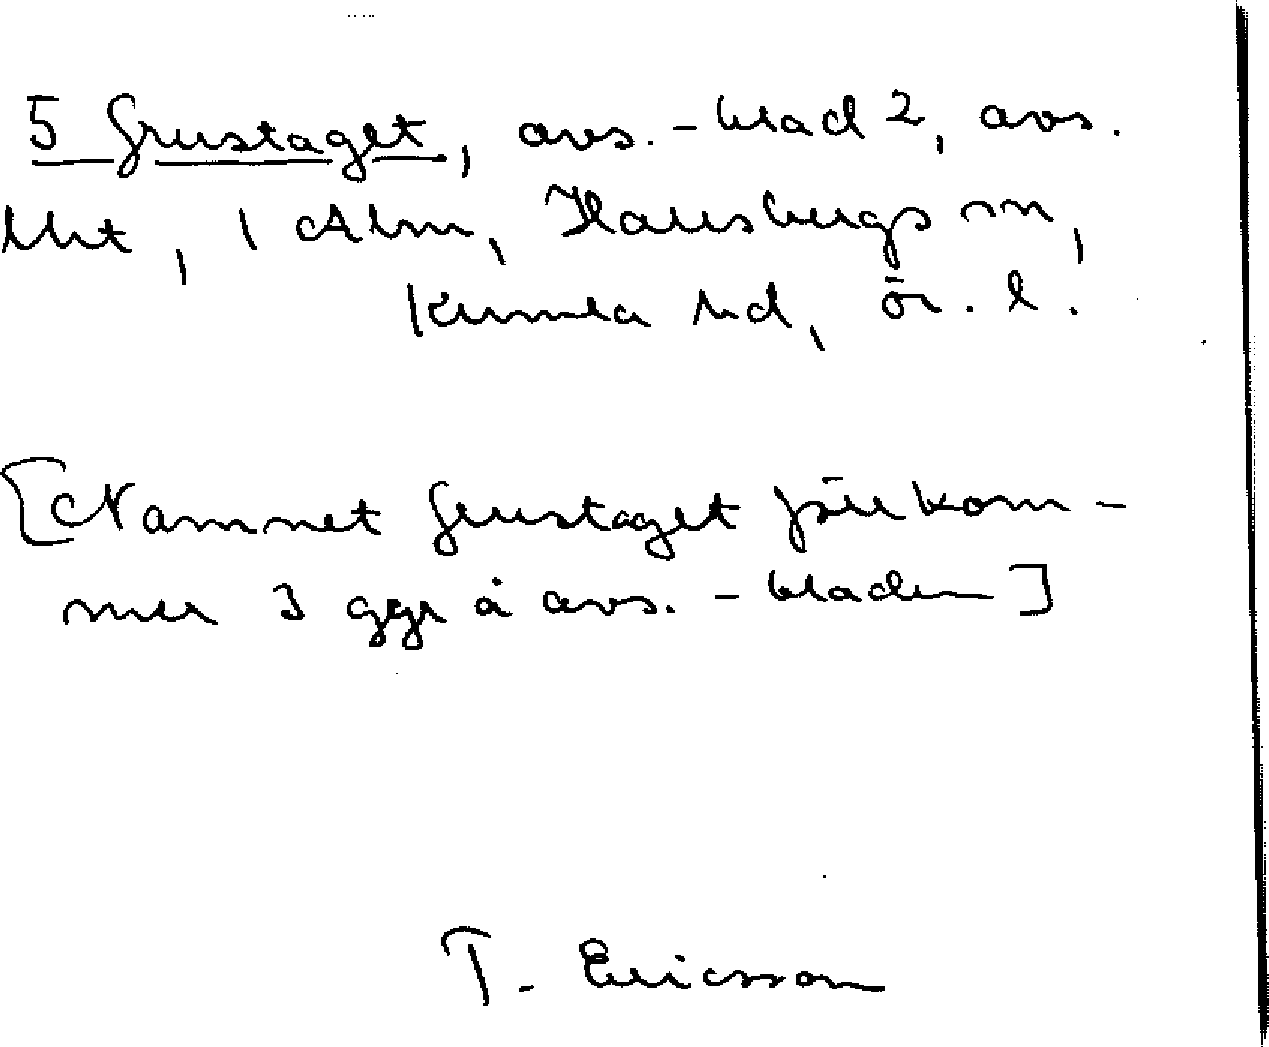 5 Grustaget, avs.-blad 2, avs.
, 1 Alm, Hallsbergs sn,
Kumla hd, ör. l.
[Namnet Grustaget förekom-
mer 3 ggr å avs.-bladen]
T. Ericsson